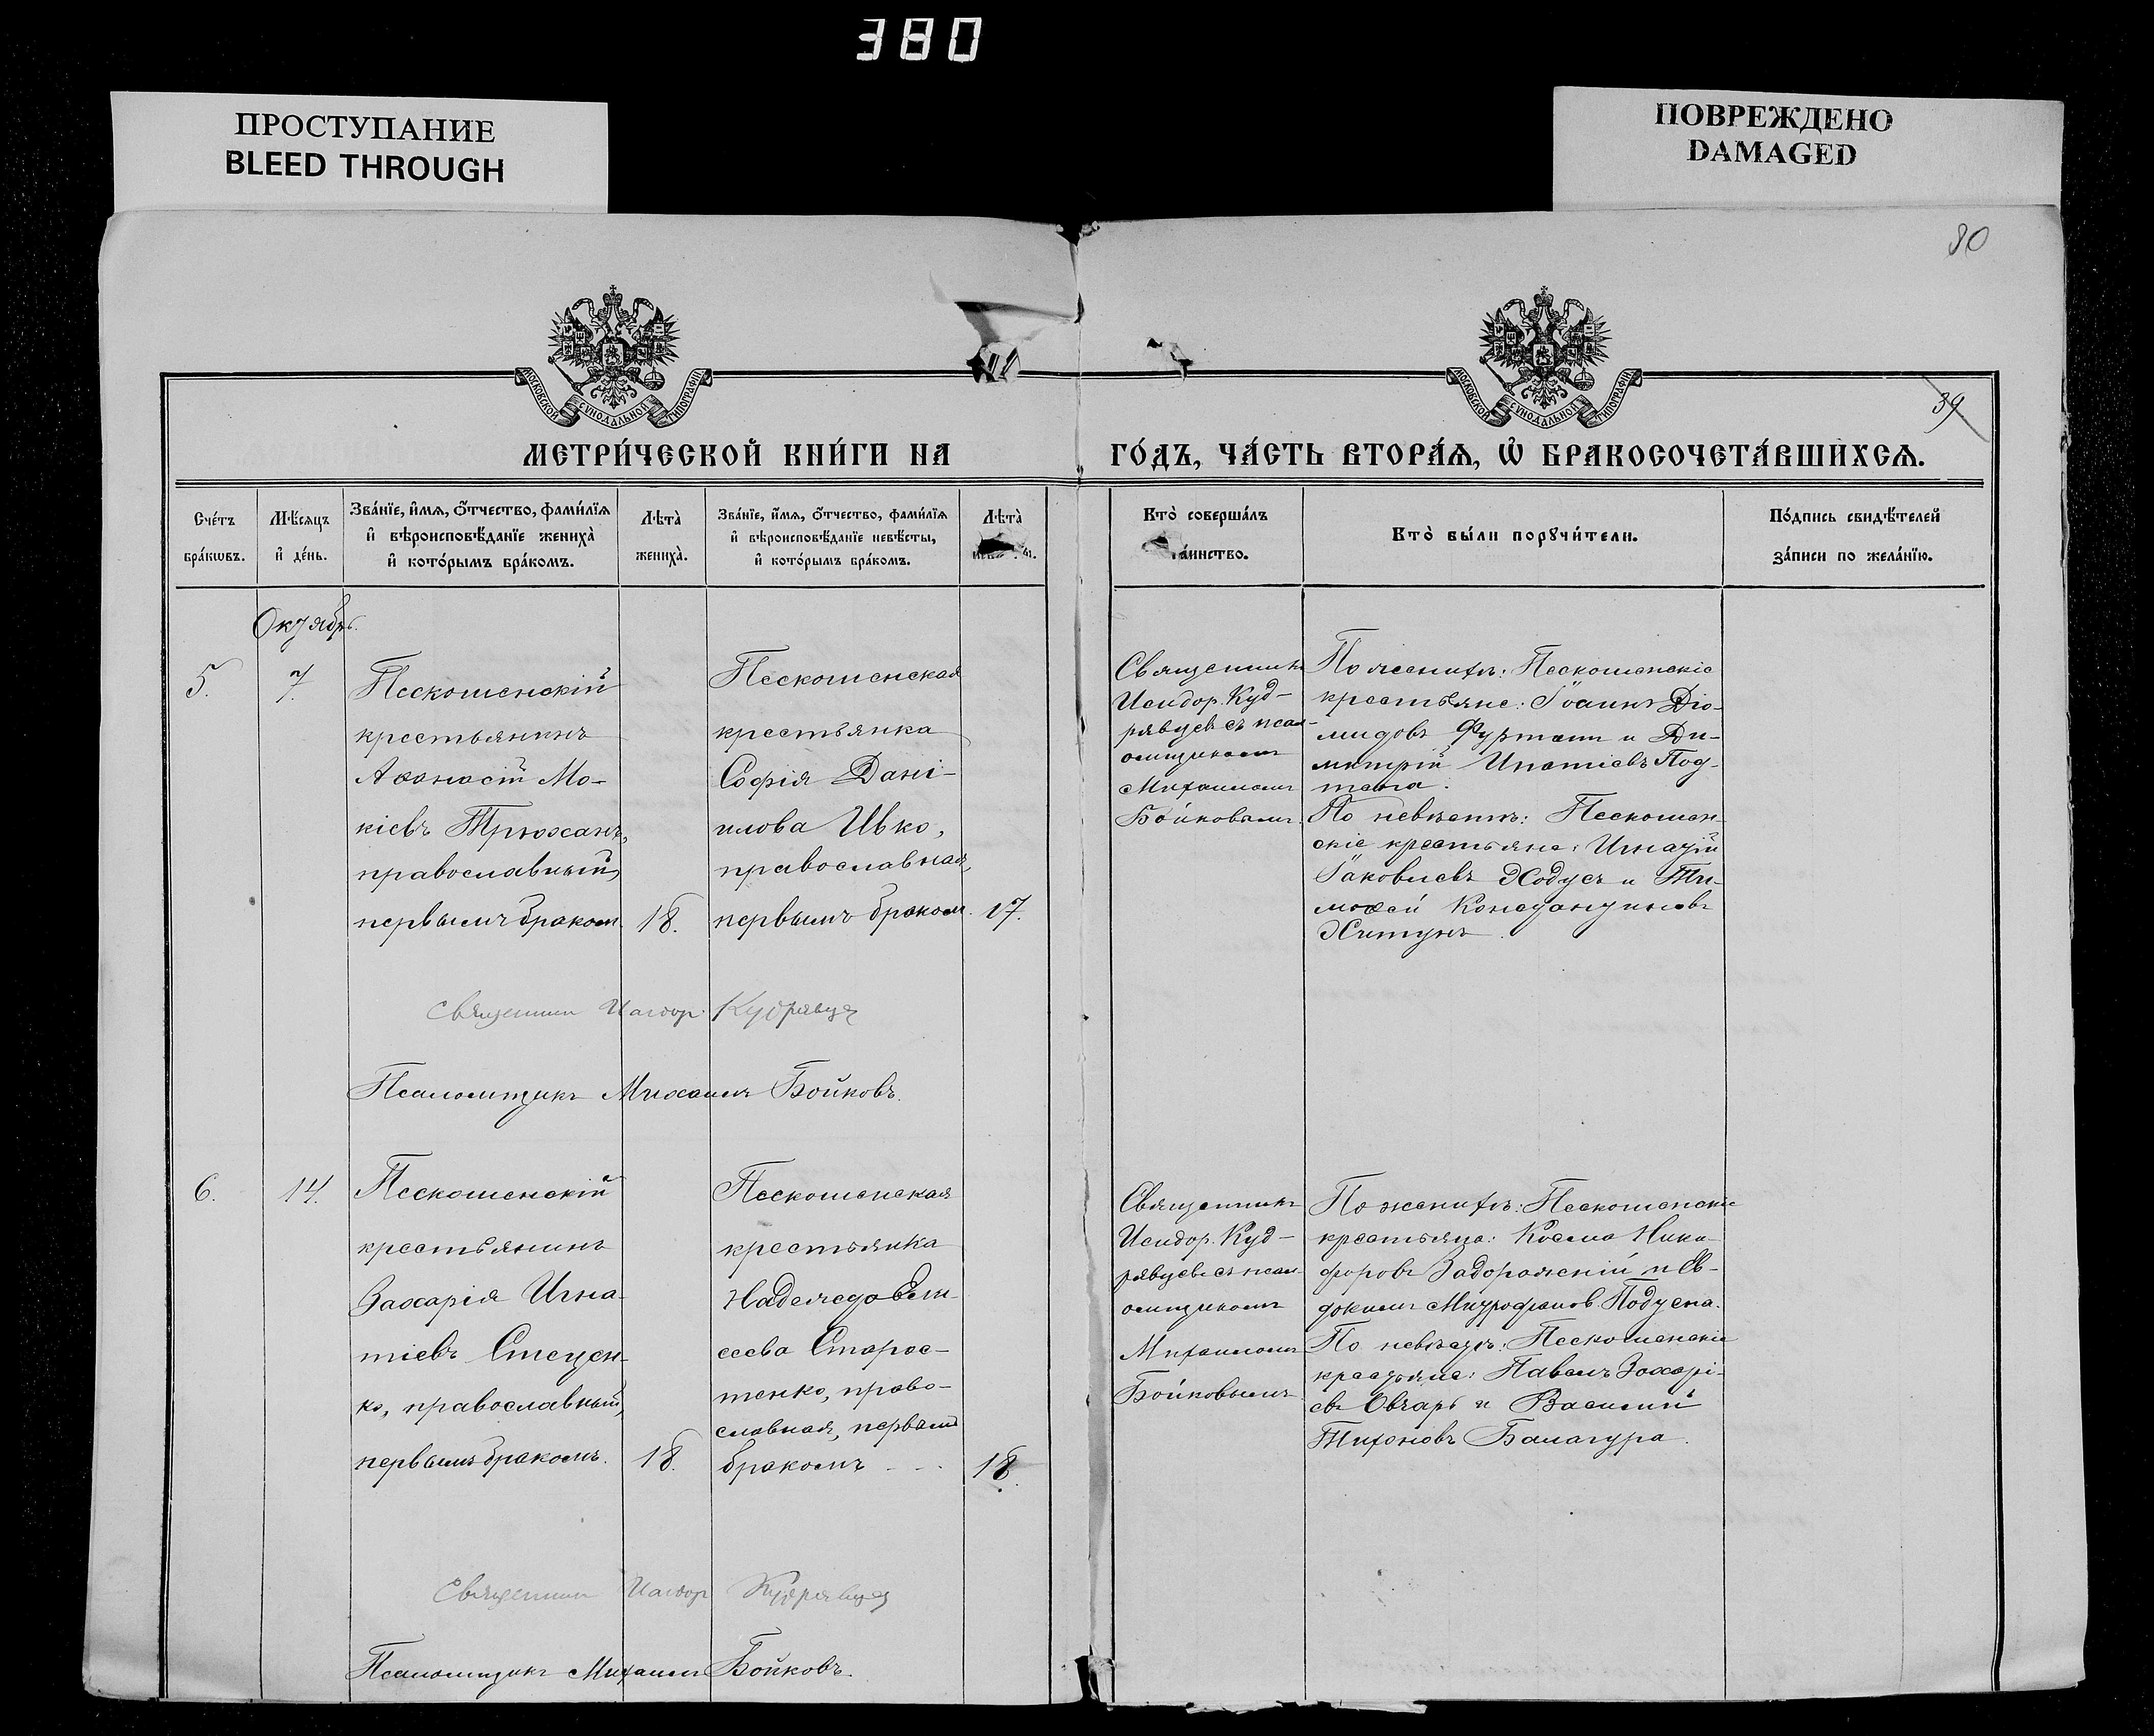 380
ПРОСТУПАНИЕ
BLEED THROUGH
ПОВРЕЖДЕНО
DAMAGED
80
МОСКОВСКОЙ СѴНОДАЛЬНОЙ ТИПОГРАФІИ
МОСКОВСКОЙ СѴНОДАЛЬНОЙ ТИПОГРАФІИ
39
МЕТРИ́ЧЕСКОЙ КНИ́ГИ НА
ГО́ДЪ, ЧА́СТЬ ВТОРА́Ѧ, Ѡ҆ БРАКОСОЧЕТА́ВШИХСѦ.
Сче́тъ
бра́кѡвъ.
Мѣ́сяцъ
и҆ де́нь.
Зва́нїе, и҆́мѧ, ѻ҆́тчество, фами́лїѧ
и҆ вѣроисповѣ́данїе жениха̀
и҆ кото́рымъ бра́комъ.
Лѣта̀
жениха̀.
Зва́нїе, и҆́мѧ, ѻ҆́тчество, фами́лїѧ
и҆ вѣроисповѣ́данїе невѣ́сты,
и҆ кото́рымъ бра́комъ.
Лѣта̀
Кто̀ соверша́лъ
а́инство.
Кто̀ бы́ли порꙋчи́тели.
По́дпись свидѣ́телей
за́писи по жела́нїю.
Октябрь.
5.
7.
Пескошенскій
крестьянинъ
Аѳанасій Мо-
кіевъ Трюханъ,
православный,
первымъ бракомъ.
18.
Пескошенская
крестьянка
Софія Дані-
илова Ивко,
православная,
первымъ бракомъ.
17.
Священникъ
Исидор. Куд-
рявцевъ съ псал-
омщикомъ
Михаиломъ
Бойковымъ.
По женихѣ: Пескошенскіе
крестьяне: Іоаннъ Діо-
мидовъ Фурманъ и Ди-
митрій Ипатіевъ Под-
По невѣстѣ: Пескошен-
скіе крестьяне: Игнатій
Іаковлевъ Ходусъ и Ти-
моѳей Константиновъ
Хитунъ.
Священник Исидор Кудрявцев
Псаломщикъ Михаилъ Бойковъ.
6.
14.
Пескошенскій
крестьянинъ
Захарія Игна-
тіевъ Стецен-
ко, православный,
первымъ бракомъ.
18.
Пескошенская
крестьянка
Надежда Ели-
сеева Старос-
тенко, право-
славная, первымъ
бракомъ
18.
Священникъ
Исидор. Куд-
рявцевъ съ псал-
омщикомъ
Михаиломъ
Бойковымъ.
По женихѣ: Пескошенскіе
крестьяне: Косма Ники-
форовъ Задорожній и Ев-
докимъ Митрофанов.
По невѣстѣ: Пескошенскіе
крестьяне: Павелъ Захарі-
евъ Овчарь и Василій
Тихоновъ Балагура.
Священник Исидор Кудрявцев
Псаломщикъ Михаилъ Бойковъ.